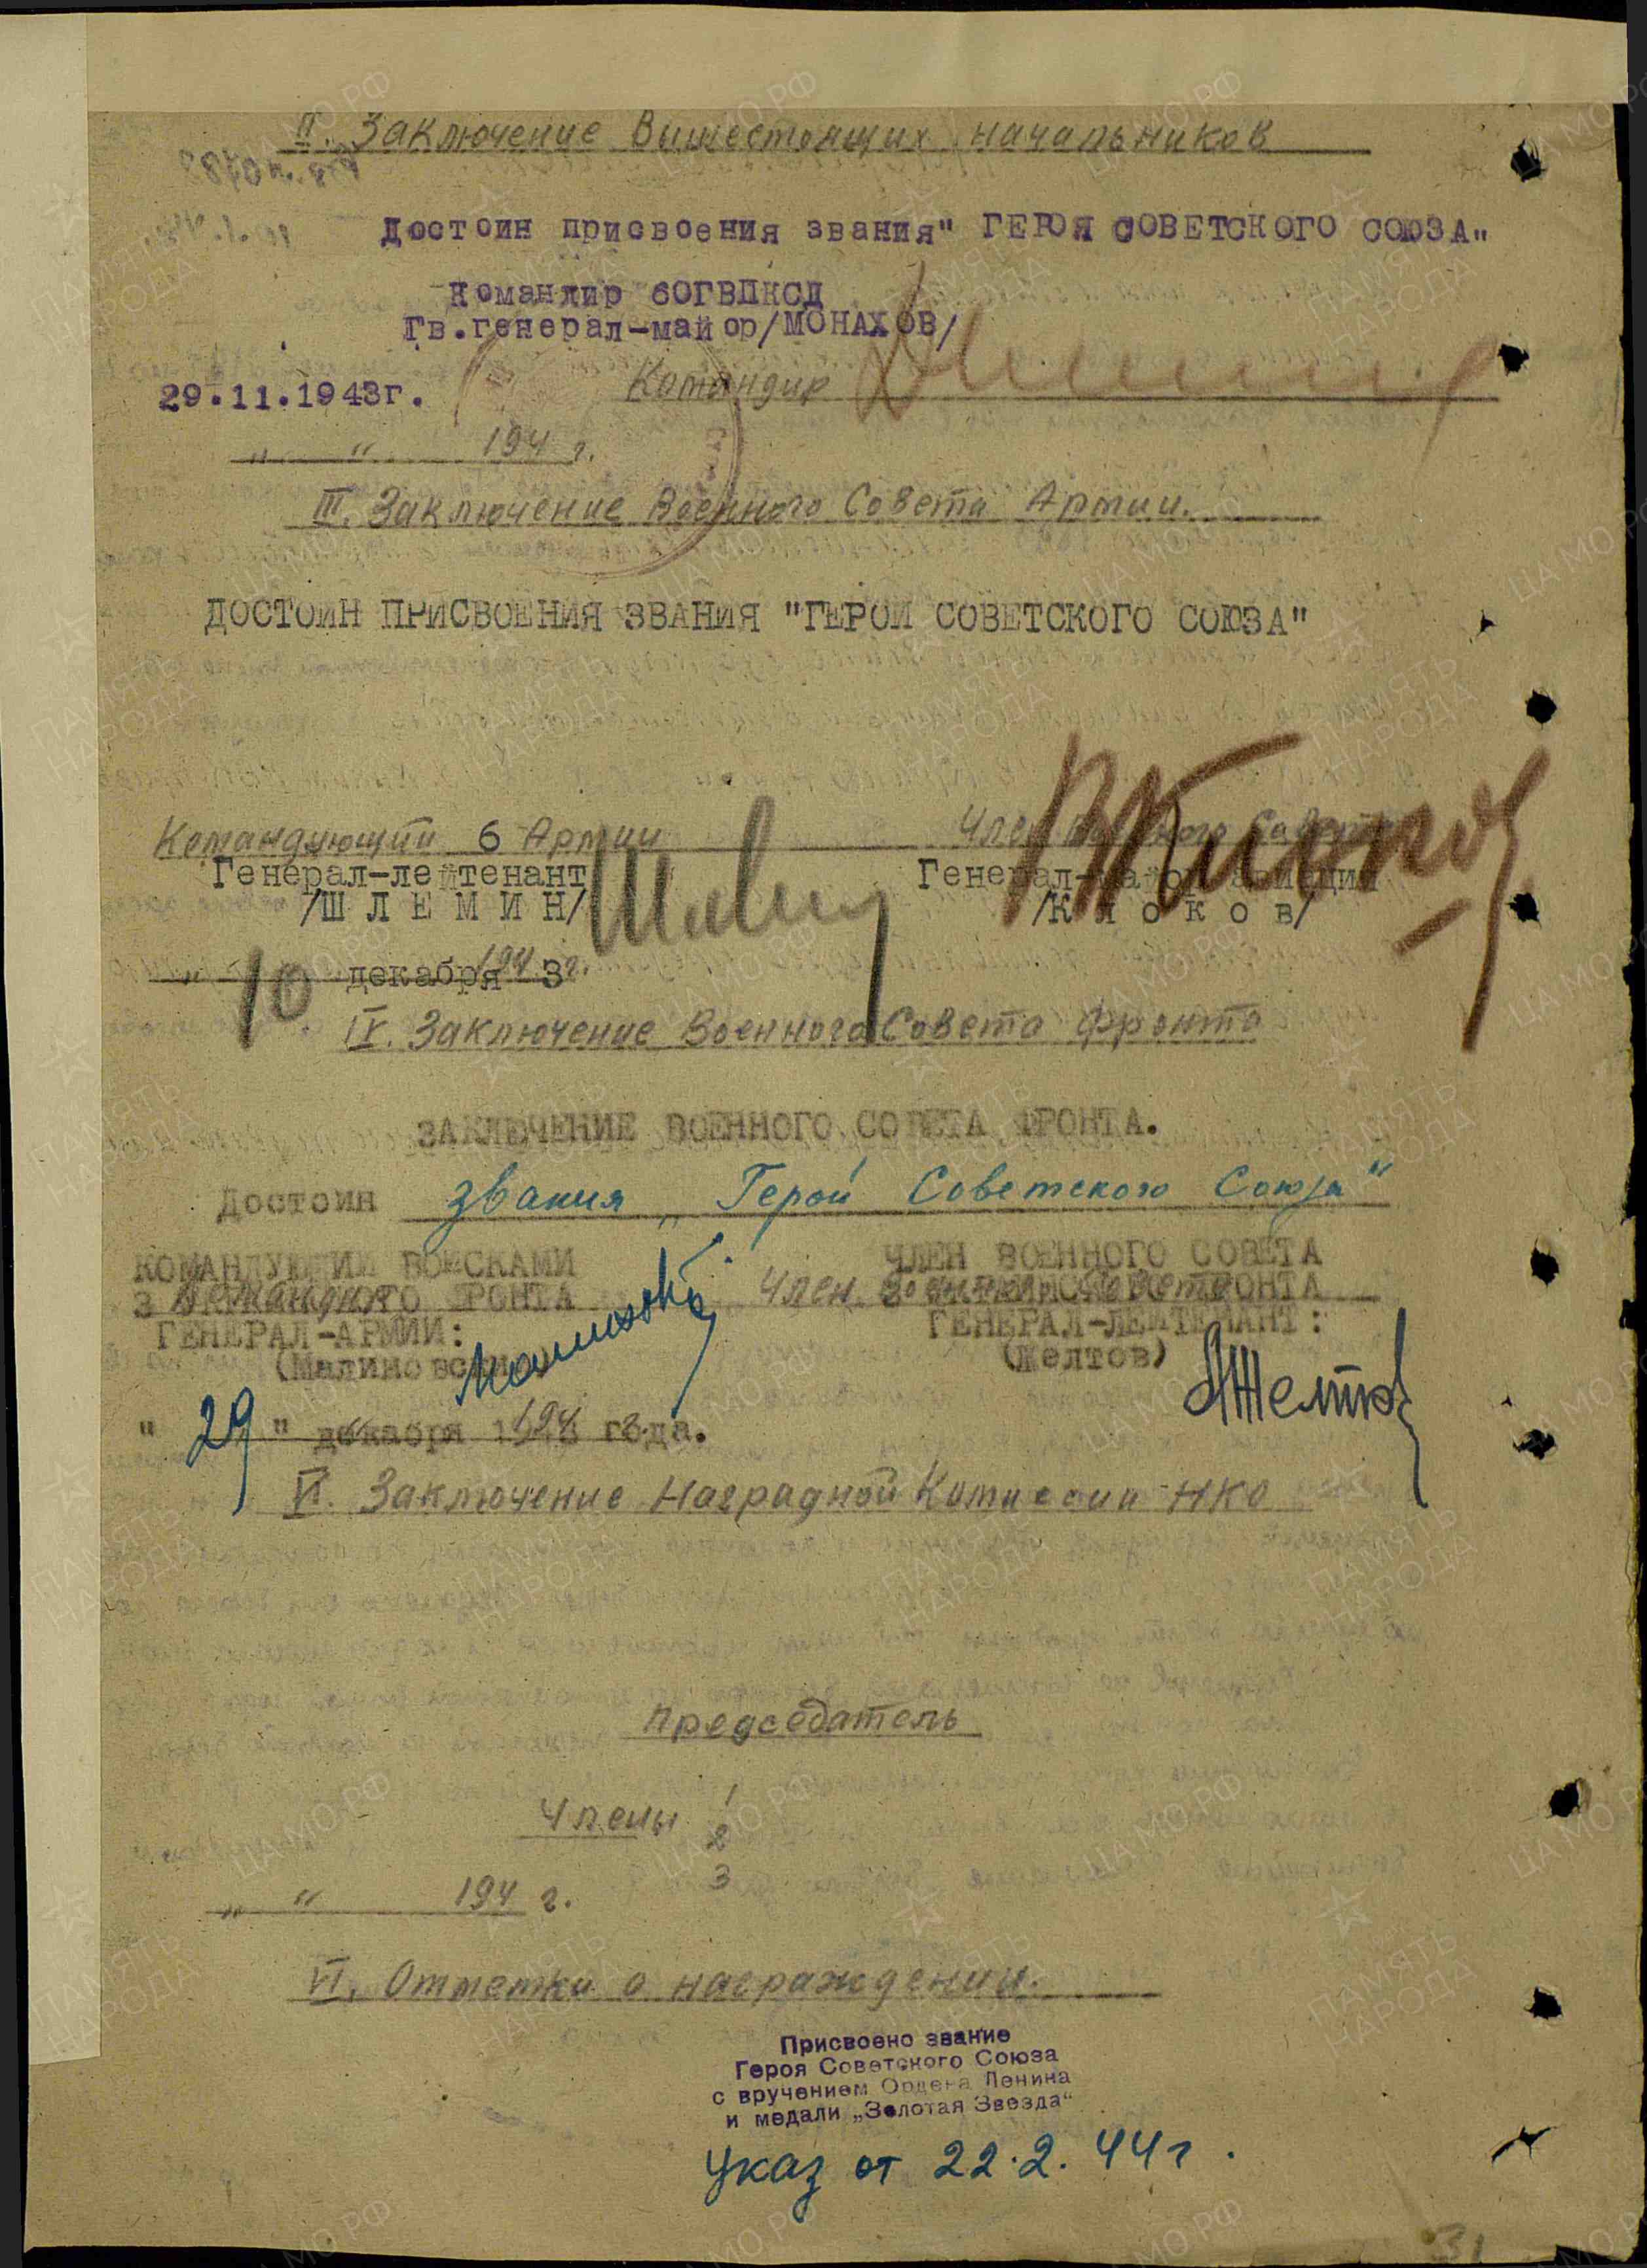 II. Заключение Вышестоящих начальников
Достоин присвоения звания" ГЕРОЯ СОВЕТСКОГО СОЮЗА"
Командир 60ГВПКСД
Гв.генерал-майор/МОНАХОВ/
Командир
29.11.1943г.
" " 194 г.
III. Заключение Военного Совета Армии.
ДОСТОИН ПРИСВОЕНИЯ ЗВАНИЯ "ГЕРОЙ СОВЕТСКОГО СОЮЗА"
Командующий 6 Армии Член Военного Совета
Генерал-лейтенант Генерал-майор авиации
/Ш Л Е М И Н/ /К л о к о в/
" 10 декабря 194 3 г.
IV. Заключение Военного Совета Фронта
ЗАКЛЮЧЕНИЕ ВОЕННОГО СОВЕТА ФРОНТА.
Достоин звания „Герой Советского Союза"
КОМАНДУЮЩИЙ ВОЙСКАМИ ЧЛЕН ВОЕННОГО СОВЕТА
3 УКРАИНСКОГО ФРОНТА Член Военного Совета 3 УКРАИНСКОГО ФРОНТА
ГЕНЕРАЛ-АРМИИ: ГЕНЕРАЛ-ЛЕЙТЕНАНТ:
(Малиновский) (Желтов)
" 29 " декабря 1943 года.
VI. Заключение Наградной Комиссии НКО
Председатель
Члены 1
2
3
" " 194 г.
VI. Отметка о награждении.
Присвоено звание
Героя Советского Союза
с вручением Ордена Ленина
и медали „Золотая Звезда"
Указ от 22.2.44г.
31